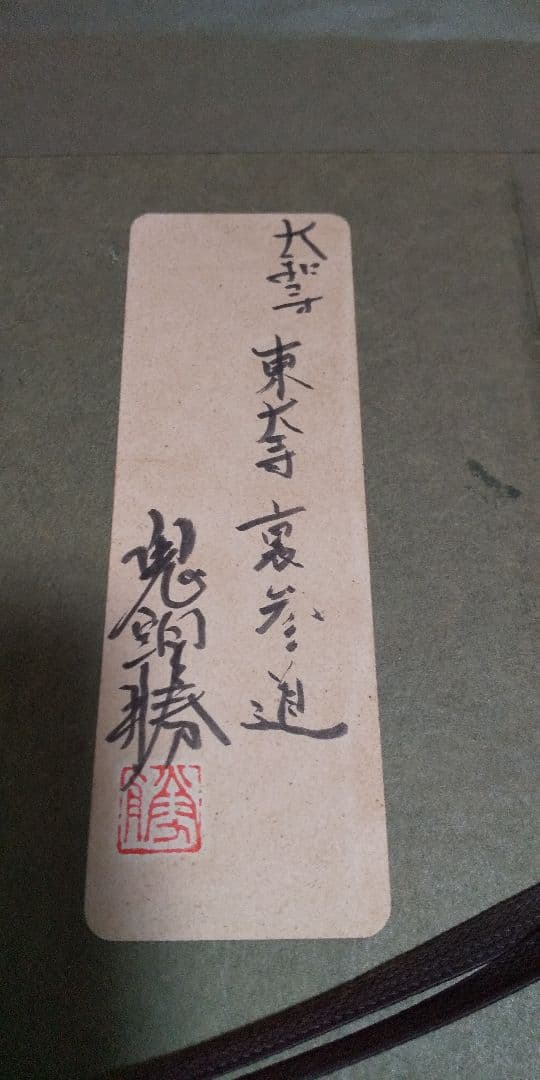 大和 東大寺 裏参道
鬼 勝
勝